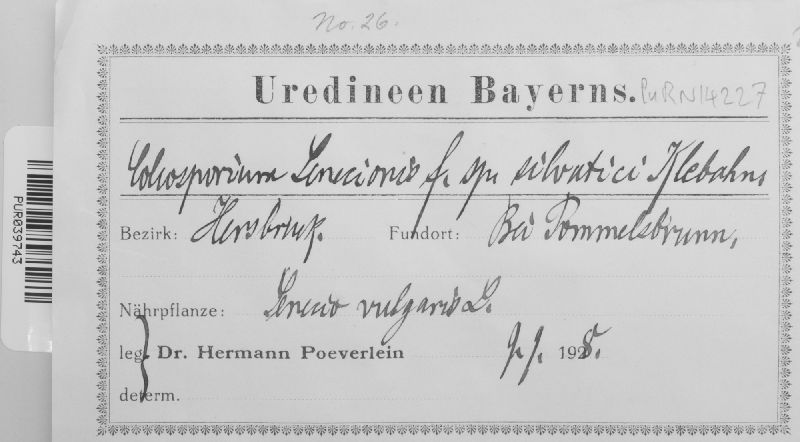 No. 26.
Uredineen Bayerns. PURN14227
Coleosporium Senecionis f. sp. silvatici Klebahn,
Bezirk: Hersbruck. Fundort: Bei Pommelsbrunn,
Nährpflanze: Senecio vulgaris L.
leg. Dr. Hermann Poeverlein 1928.
determ.
PUR039743